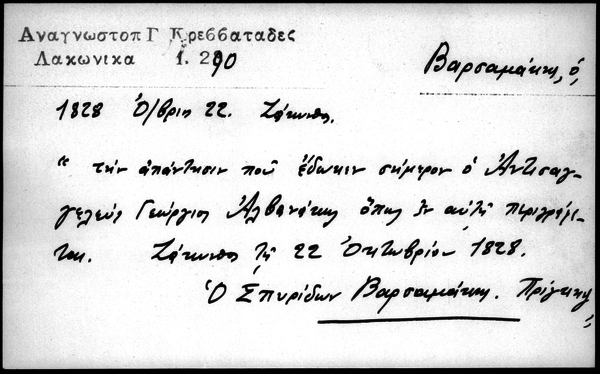 Αναγνωστοπ Γ Κρεββαταδες
Λακωνικα 1. 290
Βαρσαμάκης, ὁ,
1828 Ὀ/βριος 22. Ζάκυνθος.
“ τὴν ἀπάντησιν ποῦ ἔδωκεν σήμερον ὁ Ἀντισαγ-
γελεὺς Γεώργιος Ἀλβανάκης ὅπως ἐν αὐτῇ περιγράφε-
ται. Ζάκυνθος τῇ 22 Ὀκτωβρίου 1828.
Ὁ Σπυρίδων Βαρσαμάκης.